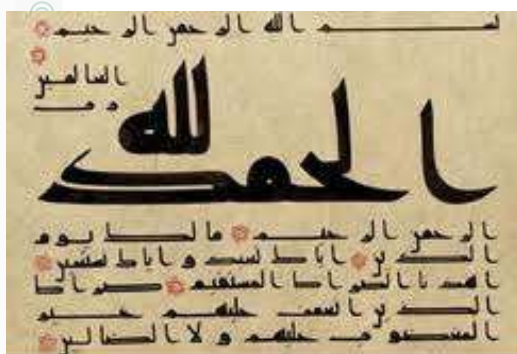 بسم الله الرحمن الرحيم
الحمد لله
رب
العالمين
الرحمن الرحيم ملك يوم
الدين اياك نعبد و اياك نستعين
اهدنا الصراط المستقيم صراط
الذين انعمت عليهم غير
المغضوب عليهم و لا الضالين